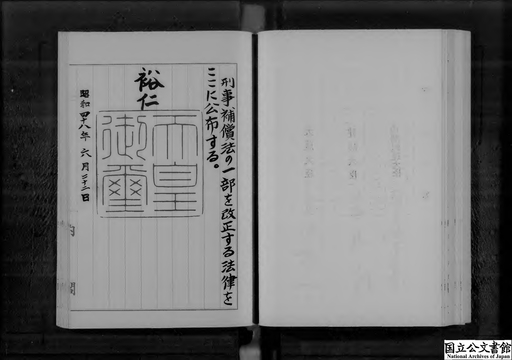 刑事補償法の一部を改正する法律を
ここに公布する。
裕仁
天皇
御璽
昭和四十八年六月二十二日
内閣
国立公文書館
National Archives of Japan